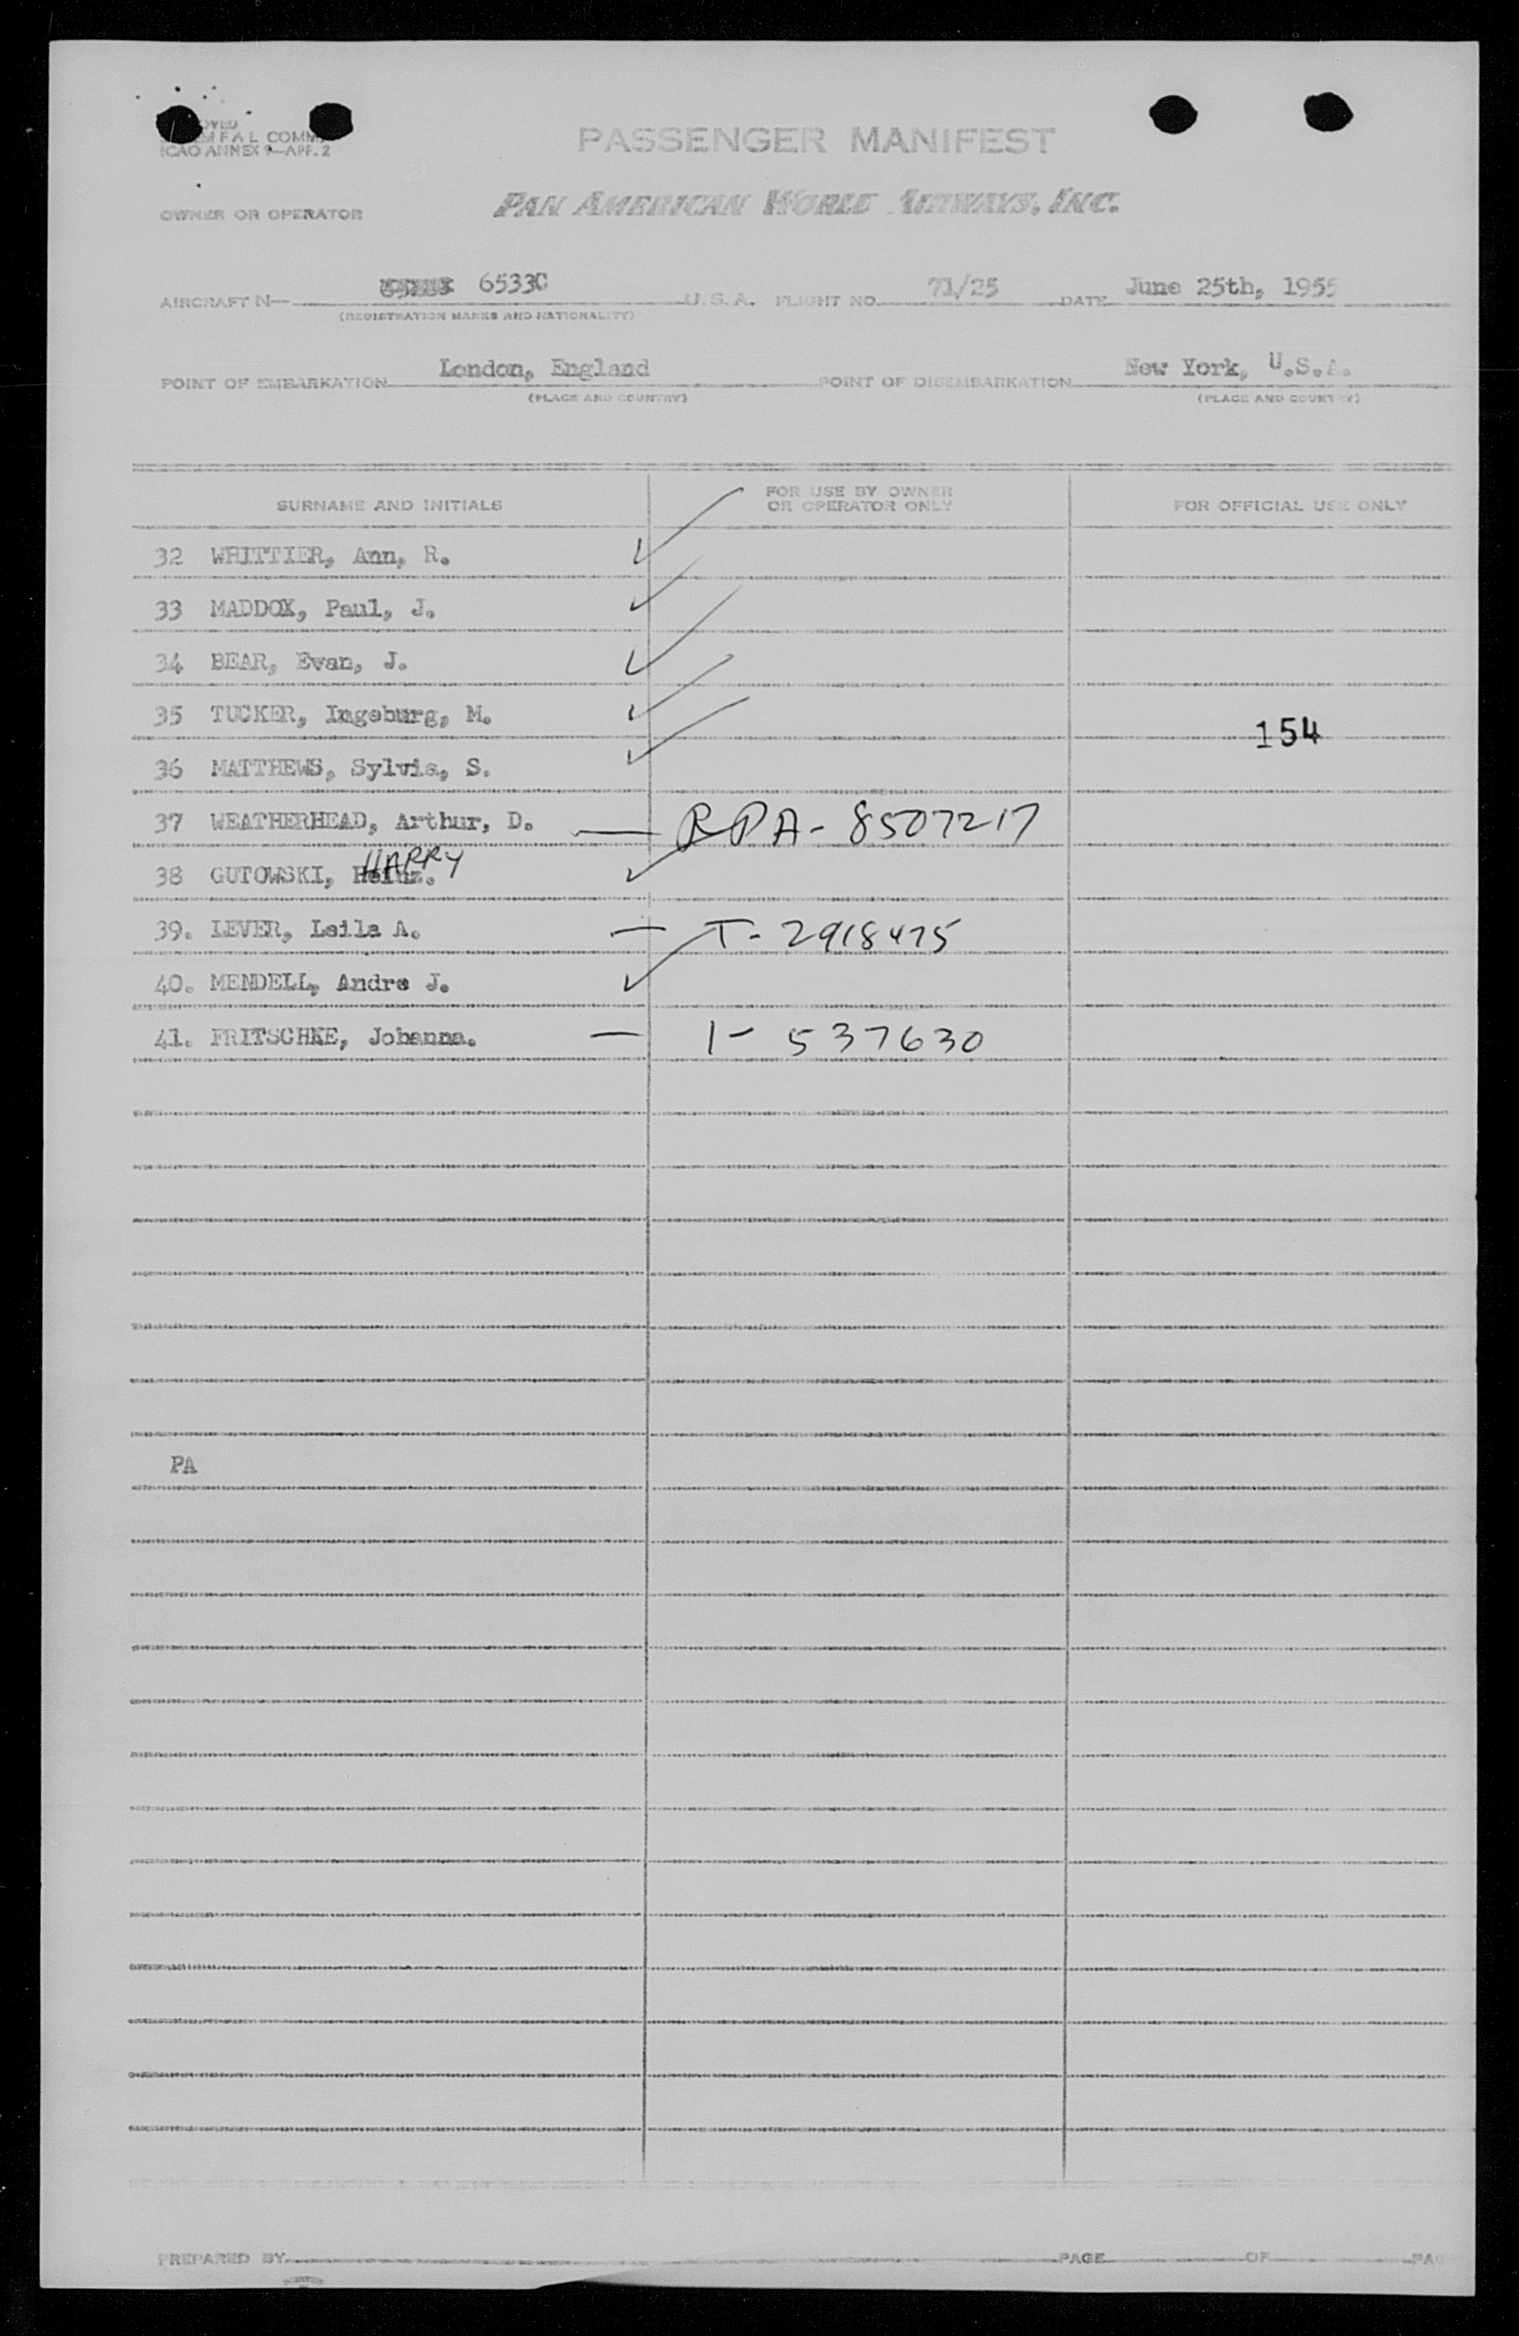 FAL COMM
ICAO ANNEX 9—APP. 2
PASSENGER MANIFEST
OWNER OR OPERATOR PAN AMERICAN WORLD AIRWAYS, INC.
AIRCRAFT N— 6533C U.S.A. FLIGHT NO. 71/25 DATE June 25th, 1955
(REGISTRATION MARKS AND NATIONALITY)
POINT OF EMBARKATION London, England POINT OF DISEMBARKATION New York, U.S.A.
(PLACE AND COUNTRY) (PLACE AND COUNTRY)
SURNAME AND INITIALS FOR USE BY OWNER OR OPERATOR ONLY FOR OFFICIAL USE ONLY
32 WHITTIER, Ann, R. ✓
33 MADDOX, Paul, J. ✓
34 BEAR, Evan, J. ✓
35 TUCKER, Ingeburg, M. ✓
154
36 MATTHEWS, Sylvia, S. ✓
37 WEATHERHEAD, Arthur, D. — RPA- 8507217
HARRY
38 GUTOWSKI, Heinz. ✓
39. LEVER, Leila A. — T- 2918475
40. MENDELL, Andre J. ✓
41. FRITSCHKE, Johanna. — 1- 537630
PA
PREPARED BY PAGE OF PAG